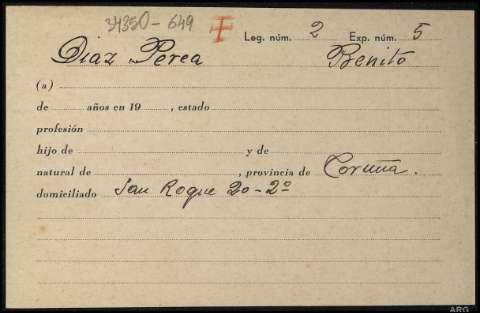 34350-649 Leg. núm. 2 Exp. núm. 5
Diaz Perea Benito
(a)
de años en 19 , estado
profesión
hijo de y de
natural de , provincia de Coruña.
domiciliado San Roque 20-2º
ARG